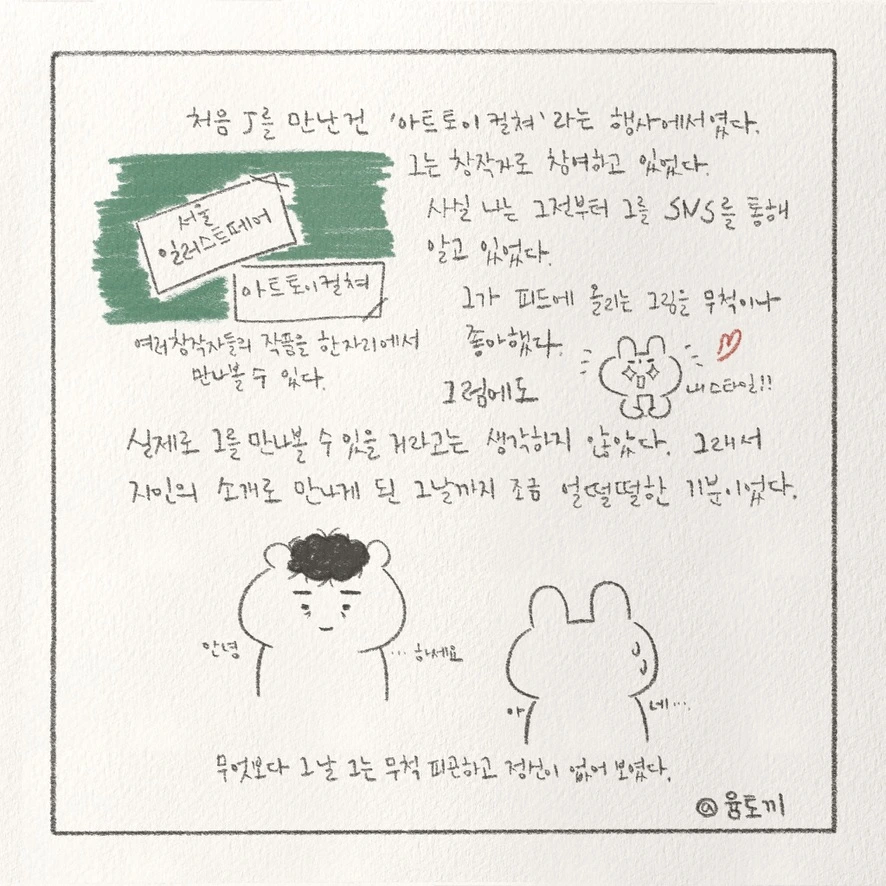 처음 J를 만난건 '아트토이컬쳐'라는 행사에서였다.
그는 창작자로 참여하고 있었다.
사실 나는 그전부터 그를 SNS를 통해
알고 있었다.
서울
일러스트페어
아트토이컬쳐
여러창작자들의 작품을 한자리에서
만나볼 수 있다.
그가 피드에 올리는 그림을 무척이나
좋아했다.
내스타일!!
그럼에도
실제로 그를 만나볼 수 있을 거라고는 생각하지 않았다. 그래서
지인의 소개로 만나게 된 그날까지 조금 얼떨떨한 기분이었다.
안녕 ...하세요
아 네...
무엇보다 그날 그는 무척 피곤하고 정신이 없어 보였다.
@윰토끼